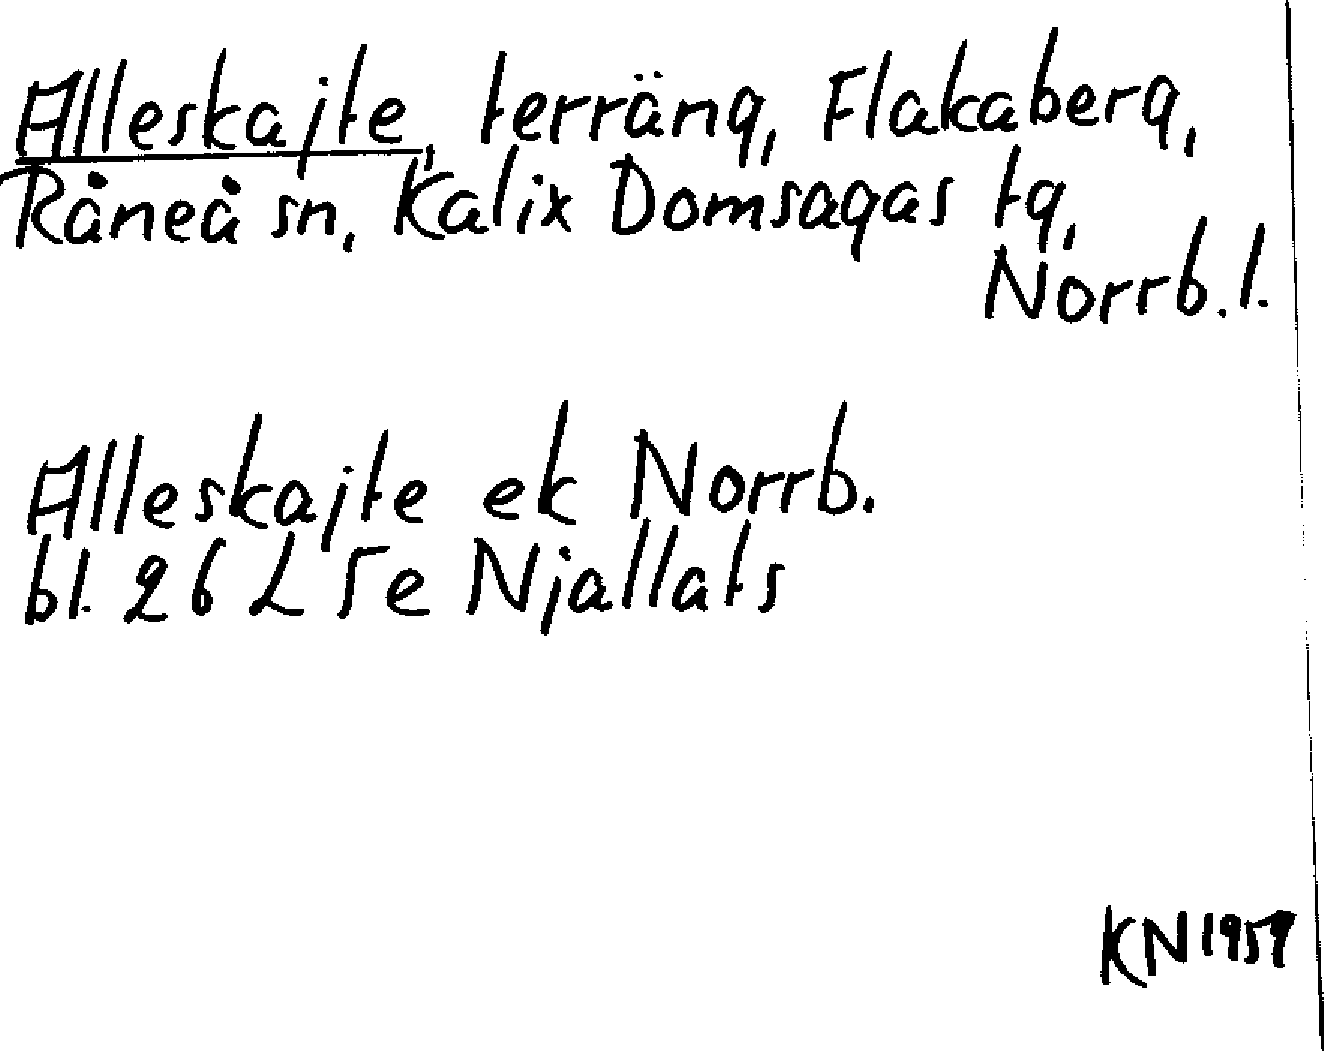 Alleskajte, terräng, Flakaberg,
Råneå sn, Kalix Domsagas tg,
Norrb. l.
Alleskajte ek Norrb.
bl. 26 L 5e Njallats
KN 1959